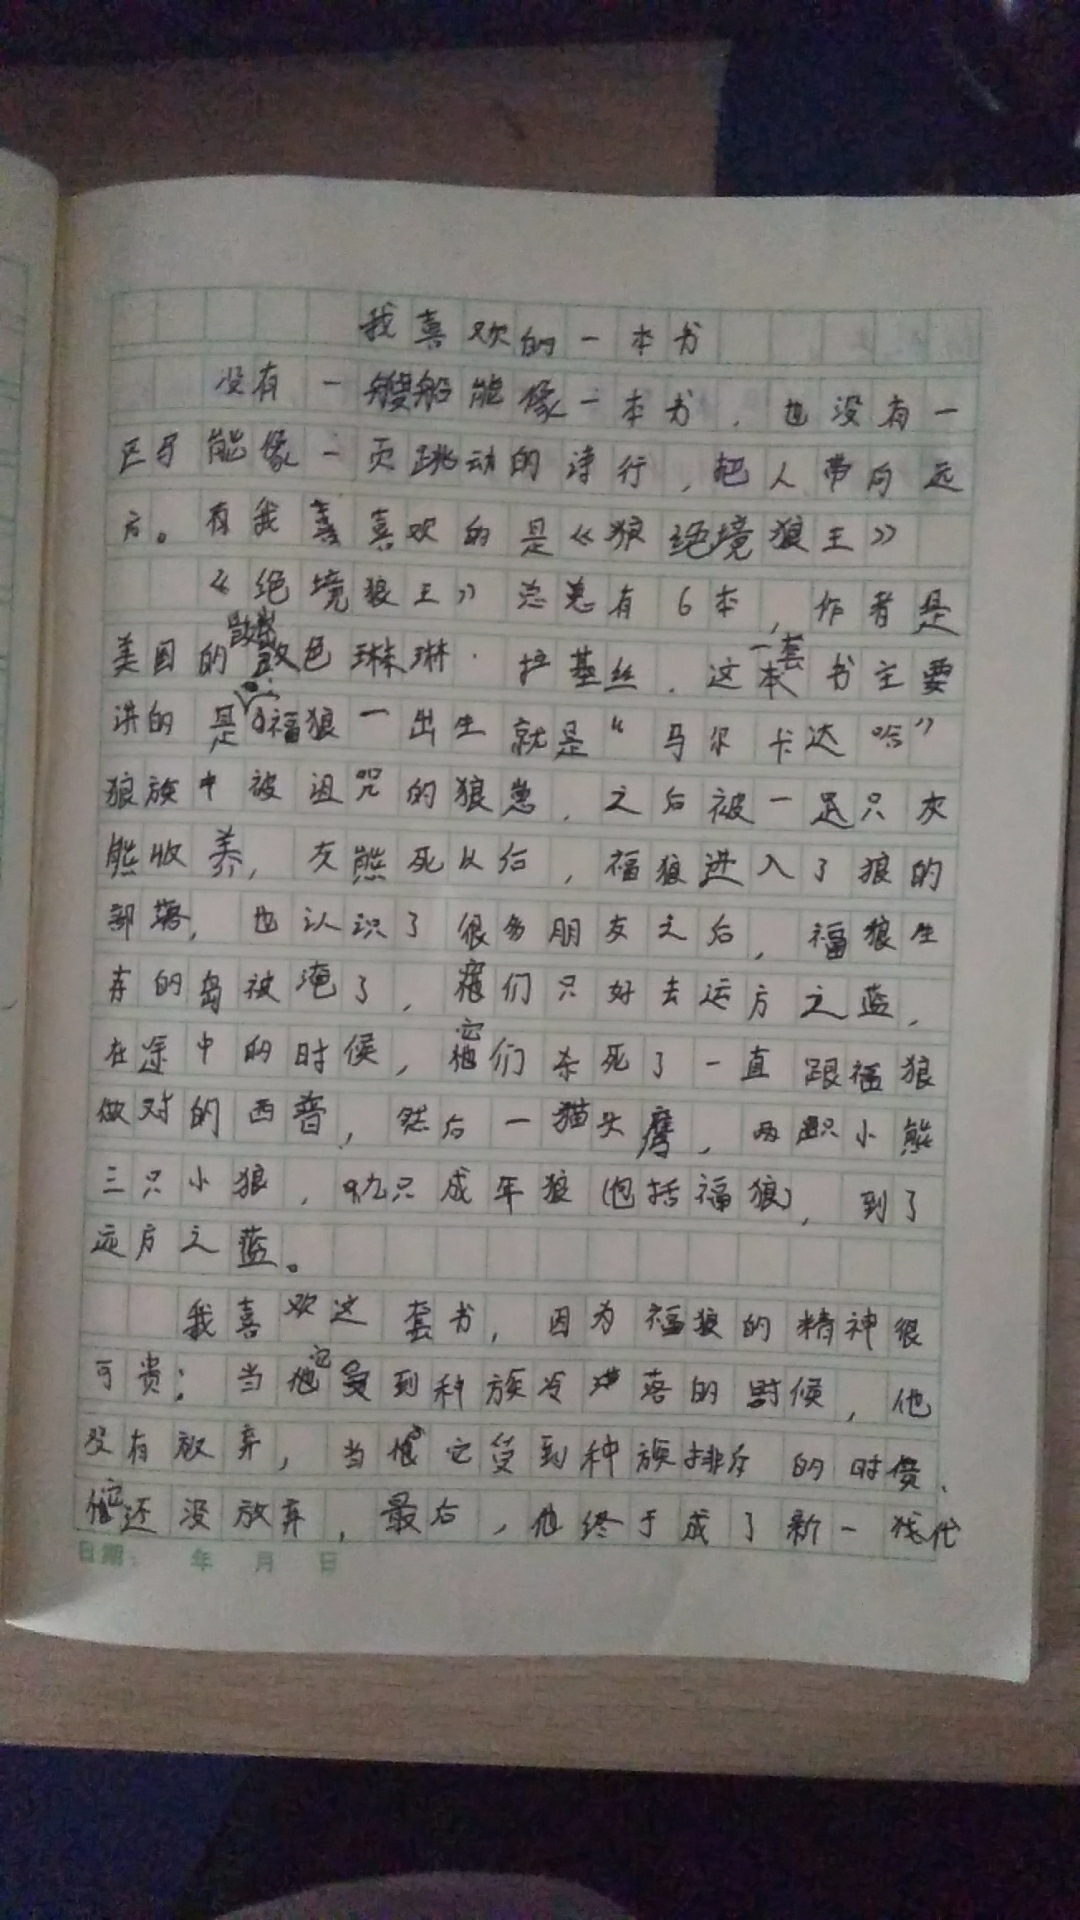 我喜欢的一本书
没有一艘船能像一本书，也没有一
匹马能像一页跳动的诗行，把人带向远
方。有我喜欢的是《狼绝境狼王》
《绝境狼王》总有6本，作者是
美国的 色琳琳·拉基丝．这一套书主要
讲的是：福狼一出生就是“马尔卡达哈”
狼族中被诅咒的狼崽，之后被一只灰
熊收养，灰熊死以后，福狼进入了狼的
部落，也认识了很多朋友之后，福狼生
存的岛被淹了，们只好去远方之蓝，
在途中的时候，它们杀死了一直跟福狼
做对的西普，然后一猫头鹰，两只小熊
三只小狼，九只成年狼（包括福狼），到了
远方之蓝。
我喜欢这套书，因为福狼的精神很
可贵；当它受到种族冷落的时候，他
没有放弃，当它受到种族排斥的时侯、
它还没放弃，最后，他终于成了新一代
日期： 年 月 日